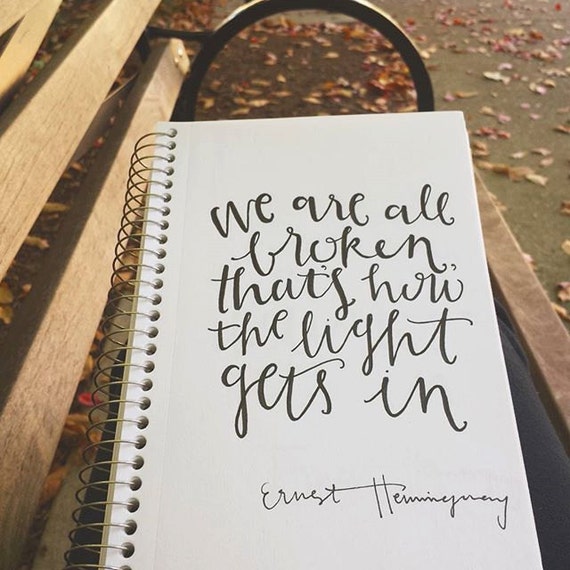 we are all
broken,
that's how
the light
gets in
Ernest Hemingway